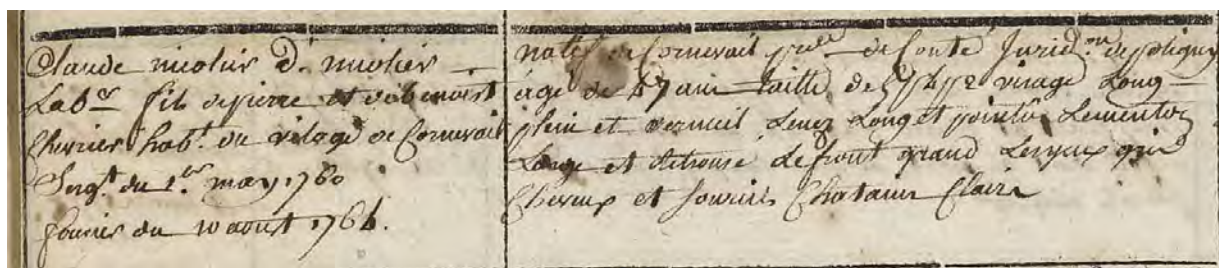 Claude nicolier d.t nicolier
Lab.r fils de pierre et de benoist
Chevrier hab.t du vilage de Cornevait
Serg.t du 1.er may 1760
fourier du 10 aoust 1764.
natif de Cornevait de Conté Jurid.on de poligny
agé de 47 ans taille de 5 p 4 p 2 visage Long
plein et vermeil Le nez Long et pointu Le menton
Large et Le front grand Les yeux gris
Cheveux et sourcils Chatains Clairs